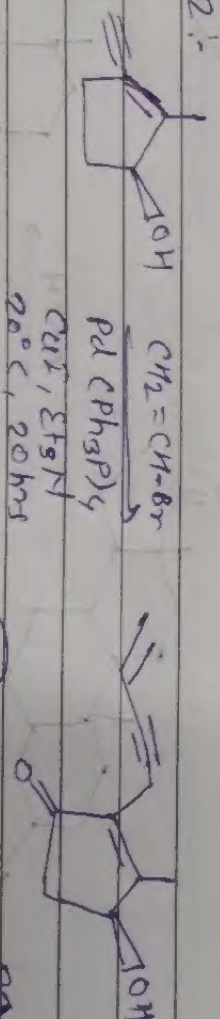 2:-
OH
CH2=CH-Br
Pd(Ph3P)4
CuI, Et3N
20°C, 20 hrs
O
OH